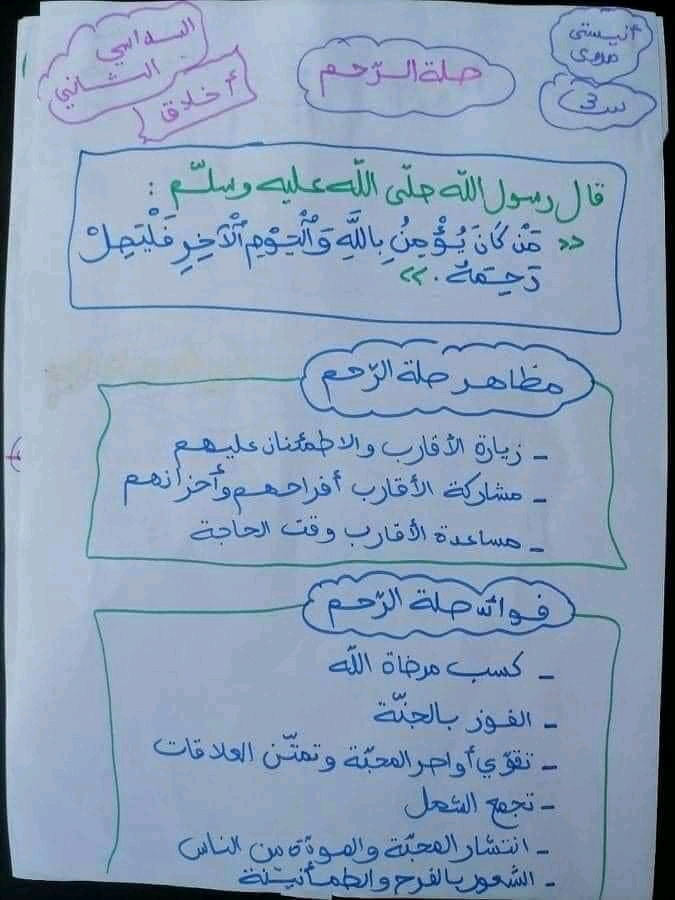 أنيستي
مروى
س3
صلة الرّحم
السداسي
الثاني
أخلاق
قال رسول الله صلّى الله عليه وسلّم :
«مَنْ كَانَ يُؤْمِنُ بِاللَّهِ وَٱلْيَوْمِ ٱلْآخِرِ فَلْيَصِلْ
رَحِمَهُ.»
مظاهر صلة الرّحم
- زيارة الأقارب والاطمئنان عليهم
- مشاركة الأقارب أفراحهم وأحزانهم
- مساعدة الأقارب وقت الحاجة
فوائد صلة الرّحم
- كسب مرضاة الله
- الفوز بالجنّة
- تقوّي أواصر المحبّة وتمتّن العلاقات
- تجمع الشمل
- انتشار المحبّة والمودّة بين الناس
- الشعور بالفرح والطمأنينة